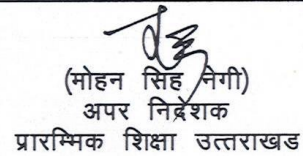 (मोहन सिंह नेगी)
अपर निदेशक
प्रारम्भिक शिक्षा उत्तराखड